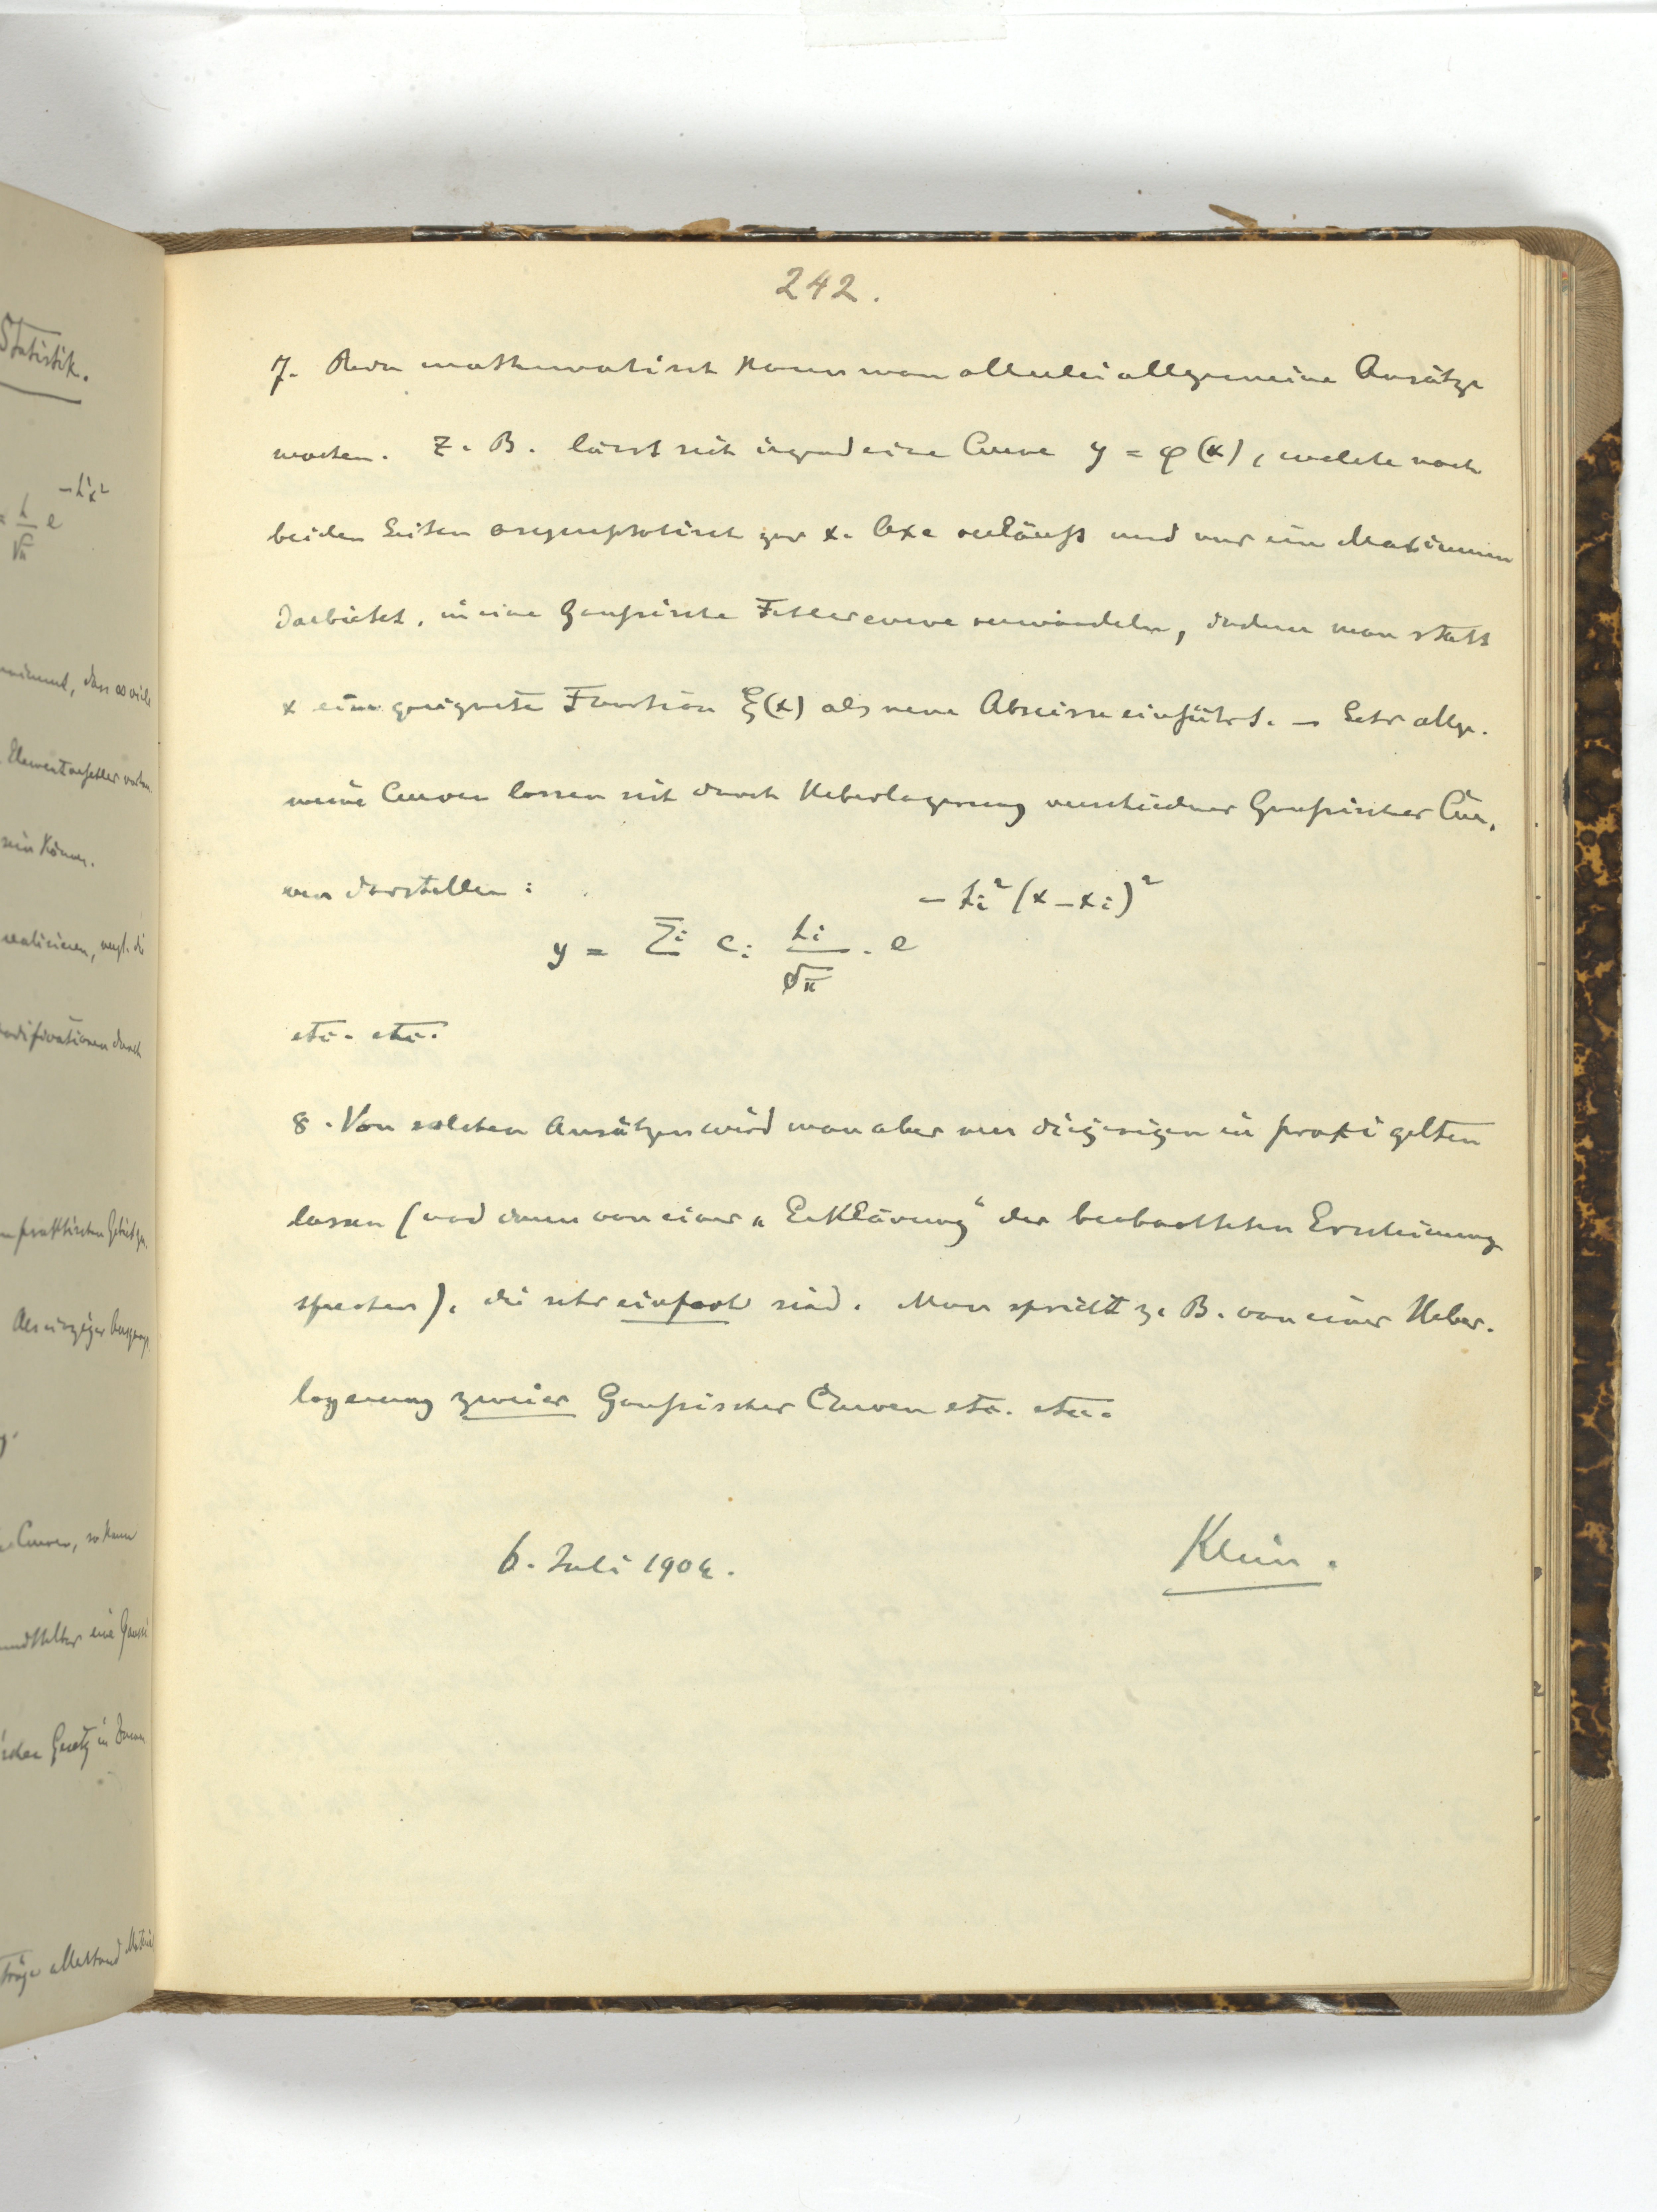 242.
7. Rein mathematisch kann man allerlei allgemeine Ansätze
machen. Z. B. lässt sich irgend eine Curve y = φ(x), welche nach
beiden Seiten asymptotisch zur x-Axe verläuft und nur ein Maximum
darbietet, in eine Gaußische Fehlercurve verwandeln, indem man statt
x eine geeignete Function ξ(x) als neue Abscisse einführt. – Sehr allge-
meine Curven lassen sich durch Ueberlagerung verschiedener Gaußischer Cur-
ven darstellen:
y = Σi ci hi/√π · e^{-hi²(x-xi)²}
etc. etc.
8. Von solchen Ansätzen wird man aber nur diejenigen in praxi gelten
lassen (und dann von einer „Erklärung“ der beobachteten Erscheinung
sprechen), die sehr einfach sind. Man spricht z. B. von einer Ueber-
lagerung zweier Gaußischer Curven etc. etc.
6. Juli 1904.
Klein.
Statistik.
= h/√π e^{-h²x²}
dass ∞ viele
sein können.
realisieren, vergl. die
praktischen Gebiet
Als einziger
Curven, so kann
eine
Gesetz in